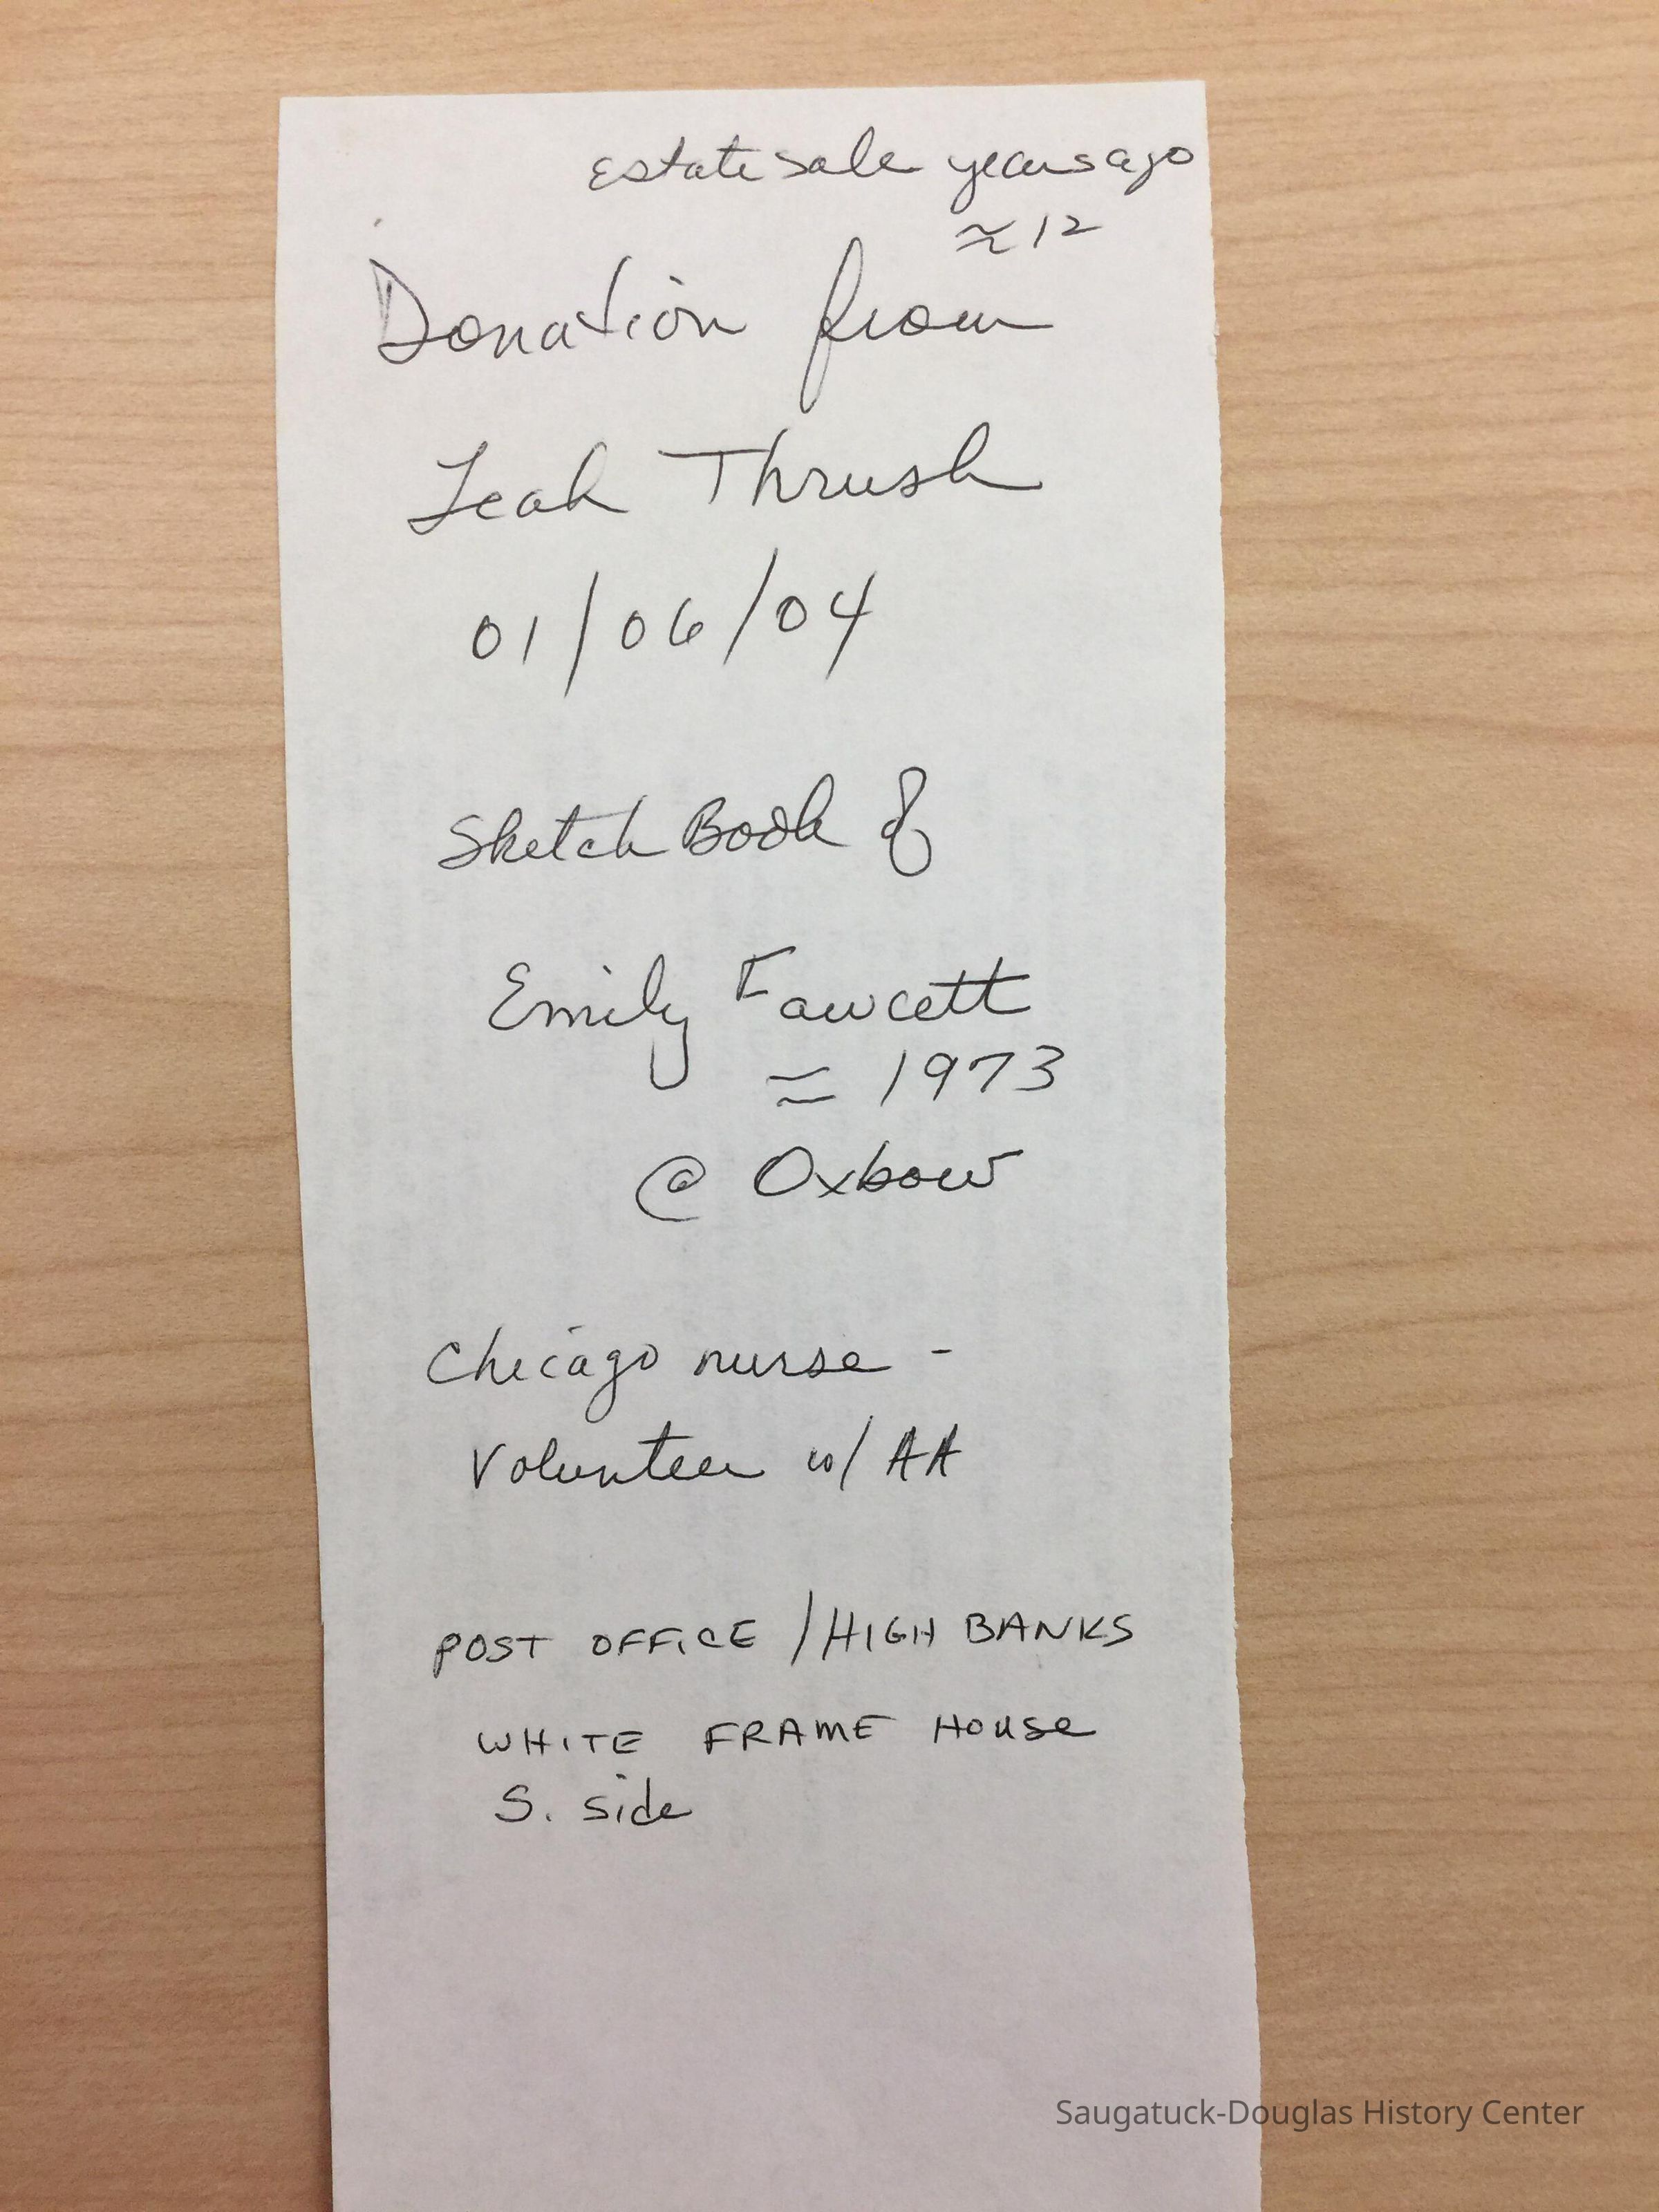 estate sale years ago
≈ 12
Donation from
Leah Thrush
01/06/04
Sketch Book of
Emily Fawcett
≈ 1973
@ Oxbow
Chicago nurse -
Volunteer w/ AA
POST OFFICE / HIGH BANKS
WHITE FRAME HOUSE
S. side
Saugatuck-Douglas History Center